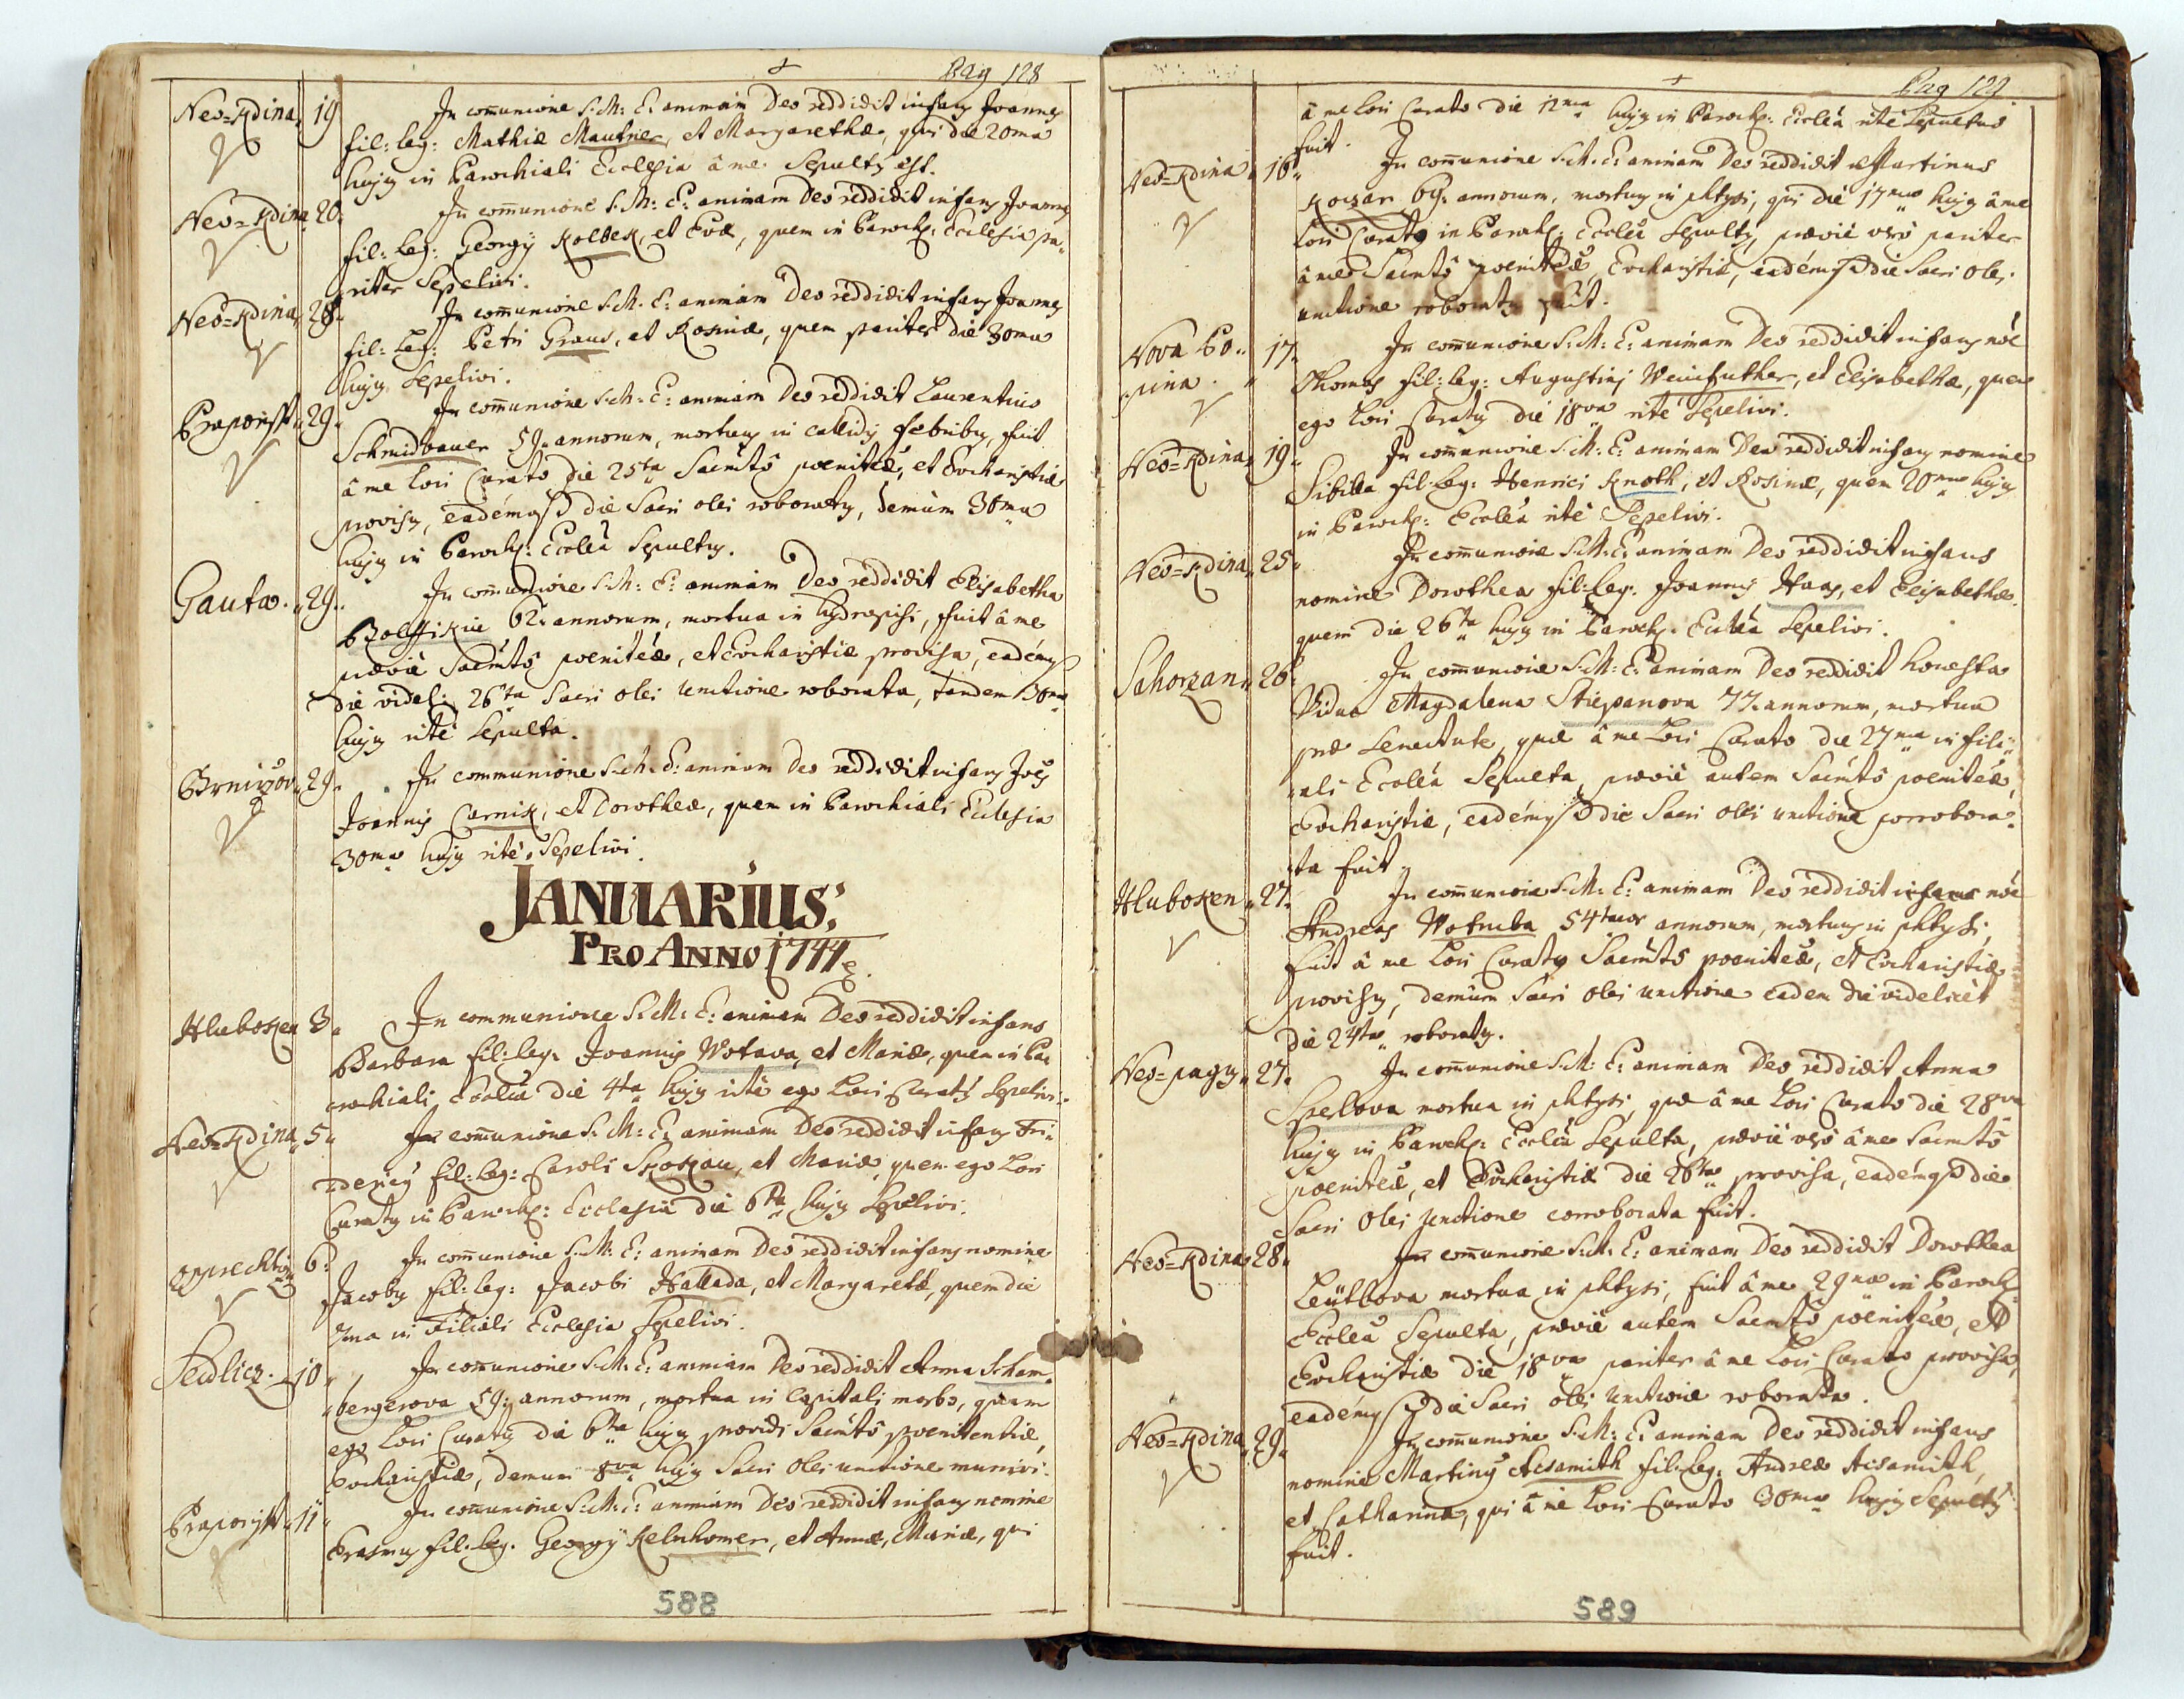 Pag 128
Neo=Kdina 19 In communione S: M: E: animam Deo reddidit infans Joannes
fil: leg: Mathiæ Mautner, et Margarethæ, qui die 20ma
hujus in Parochiali Ecclesia â me Sepultus est.
Neo=Kdina 20. In communione S: M: E: animam Deo reddidit infans Joannes
fil: Leg: Georgÿ Kolbek, et Evæ, quem in Paroch: Ecclesia pa-
riter Sepelivi.
Neo=Kdina 28. In communione S: M: E: animam Deo reddidit infans Joannes
fil: Leg: Petri Graus, et Rosinæ, quem pariter die 30ma
hujus Sepelivi.
29. In communione S: M: E: animam Deo reddidit Laurentius
Schmidbauer 59. annorum, mortuus in callidis febribus, fuit
â me Loci Curato die 25ta Sacr̃mtõ poenite͠æ, et Eucharistiæ
provisus, eadémq3 die Sacri olei roboratus, demùm 30ma
hujus in Paroch: Eccleã Sepultus.
Gauta. 29. In communione S: M: E: animam Deo reddidit Elisabetha
62. annorum, mortua in hydropisi, fuit â me
prævie Sacr̃mtõ poenite͠æ, et Eucharistiæ provisa, eadémq3
die videl: 26ta Sacri olei unctione roborata, tandem 30ma
hujus rite Sepulta.
29. In communione S: M: E: animam Deo reddidit infans Joẽs
Joannis Carnik, et Dorotheæ, quem in Parochiali Ecclesia
30ma hujus rite Sepelivi.
JANUARIUS:
PRO ANNO 1744
Hluboken 3. In communione S: M: E: animam Deo reddidit infans
Barbara fil: leg: Joannis Wotava, et Mariæ, quem in Pa-
rochiali Eccleã die 4ta hujus rite ego Loci Curatus Sepelivi.
Neo=Kdina 5. In communione S: M: E: animam Deo reddidit infans Fri-
dericus fil: leg: Caroli Skokau, et Mariæ, quem ego Loci
Curatus in Paroch: Ecclesia die 6ta hujus Sepelivi.
6. In communione S: M: E: animam Deo reddidit infans nomine
Jacobus fil: leg: Jacobi Hallada, et Margaretæ, quem die
7ma in Filiali Ecclesia Sepelivi.
Sedlicz. 10. In communione S: M: E: animam Deo reddidit Anna Scham-
bergerova 59. annorum, mortua in Capitali morbo, quam
ego Loci Curatus die 6ta hujus providi Sacr̃mtõ poenitentiæ,
Eucharistiæ, demum 8va hujus Sacri olei unctione munivi.
11. In communione S: M: E: animam Deo reddidit infans nomine
Erasmus fil: Leg: Georgÿ Kelnhomer, et Annæ, Mariæ, qui
588
Pag 129
â me Loci Curato die 12ma hujus in Paroch: Eccleã rite Sepultus
fuit.
Neo=Kdina 16. In communione S: M: E: animam Deo reddidit Martinus
Koczar 69. annorum, mortuus in phtysi, qui die 17ma hujus â me
Loci Curato in Paroch: Eccleã Sepultus, prævie verõ pariter
â me Sacr̃mtõ poenite͠æ, Eucharistiæ, eadémq3 die Sacri olei
unctione roboratus fuit.
Nova Po- 17. In communione S: M: E: animam Deo reddidit infans nõe
pina. Thomas fil: leg: Augustini Weinfuther, et Elisabethæ, quem
ego Loci Curatus die 18va rite Sepelivi.
Neo=Kdina 19. In communione S: M: E: animam Deo reddidit infans nomine
Sibilla fil: Leg: Henrici Knoth, et Rosinæ, quem 20ma hujus
in Paroch: Eccleã rite Sepelivi.
Neo=Kdina 25. In communione S: M: E: animam Deo reddidit infans
nomine Dorothea fil: Leg: Joannis Haas, et Elisabethæ,
quem die 26ta hujus in Paroch: Eccleã Sepelivi.
Sahorzan. 26. In communione S: M: E: animam Deo reddidit honesta
Vidua Magdalena Stiepanova 77. annorum, mortua
præ Senectute, quæ â me Loci Curato die 27ma in fili-
ali Eccleã Sepulta, prævie autem Sacr̃mtõ poenite͠æ,
Eucharistiæ, eadémq3 die Sacri olei unctione porrobora-
ta fuit.
Hluboken 27. In communione S: M: E: animam Deo reddidit infans nõe
Andreas Wotruba 54tuor annorum, mortuus in phtysi,
fuit â me Loci Curatus Sacr̃mtõ poenite͠æ, et Eucharistiæ
provisus, demùm Sacri olei unctione eadem die videlicèt
die 24ta roboratus.
Neo=pagus 27. In communione S: M: E: animam Deo reddidit Anna
Sperlova mortua in phtysi, quæ â me Loci Curato die 28va
hujus in Paroch: Eccleã Sepulta, prævie verõ â me Sacr̃mtõ
poenite͠æ, et Eucharistiæ die 26ta provisa, eadémq3 die
Sacri Olei unctione corroborata fuit.
Neo=Kdina 28. In communione S: M: E: animam Deo reddidit Dorothea
Leütlova mortua in phtysi, fuit â me 29na in Paroch:
Eccleã Sepulta, prævie autem Sacr̃mtõ poenite͠æ, et
Eucharistiæ die 18va pariter â me Loci Curato provisa,
eadémq3 die Sacri olei unctione roborata.
Neo=Kdina 29. In communione S: M: E: animam Deo reddidit infans
nomine Martinus Acsamith fil: Leg: Andreæ Acsamith,
et Catharinæ, qui â me Loci Curato 30ma hujus Sepultus
fuit.
589